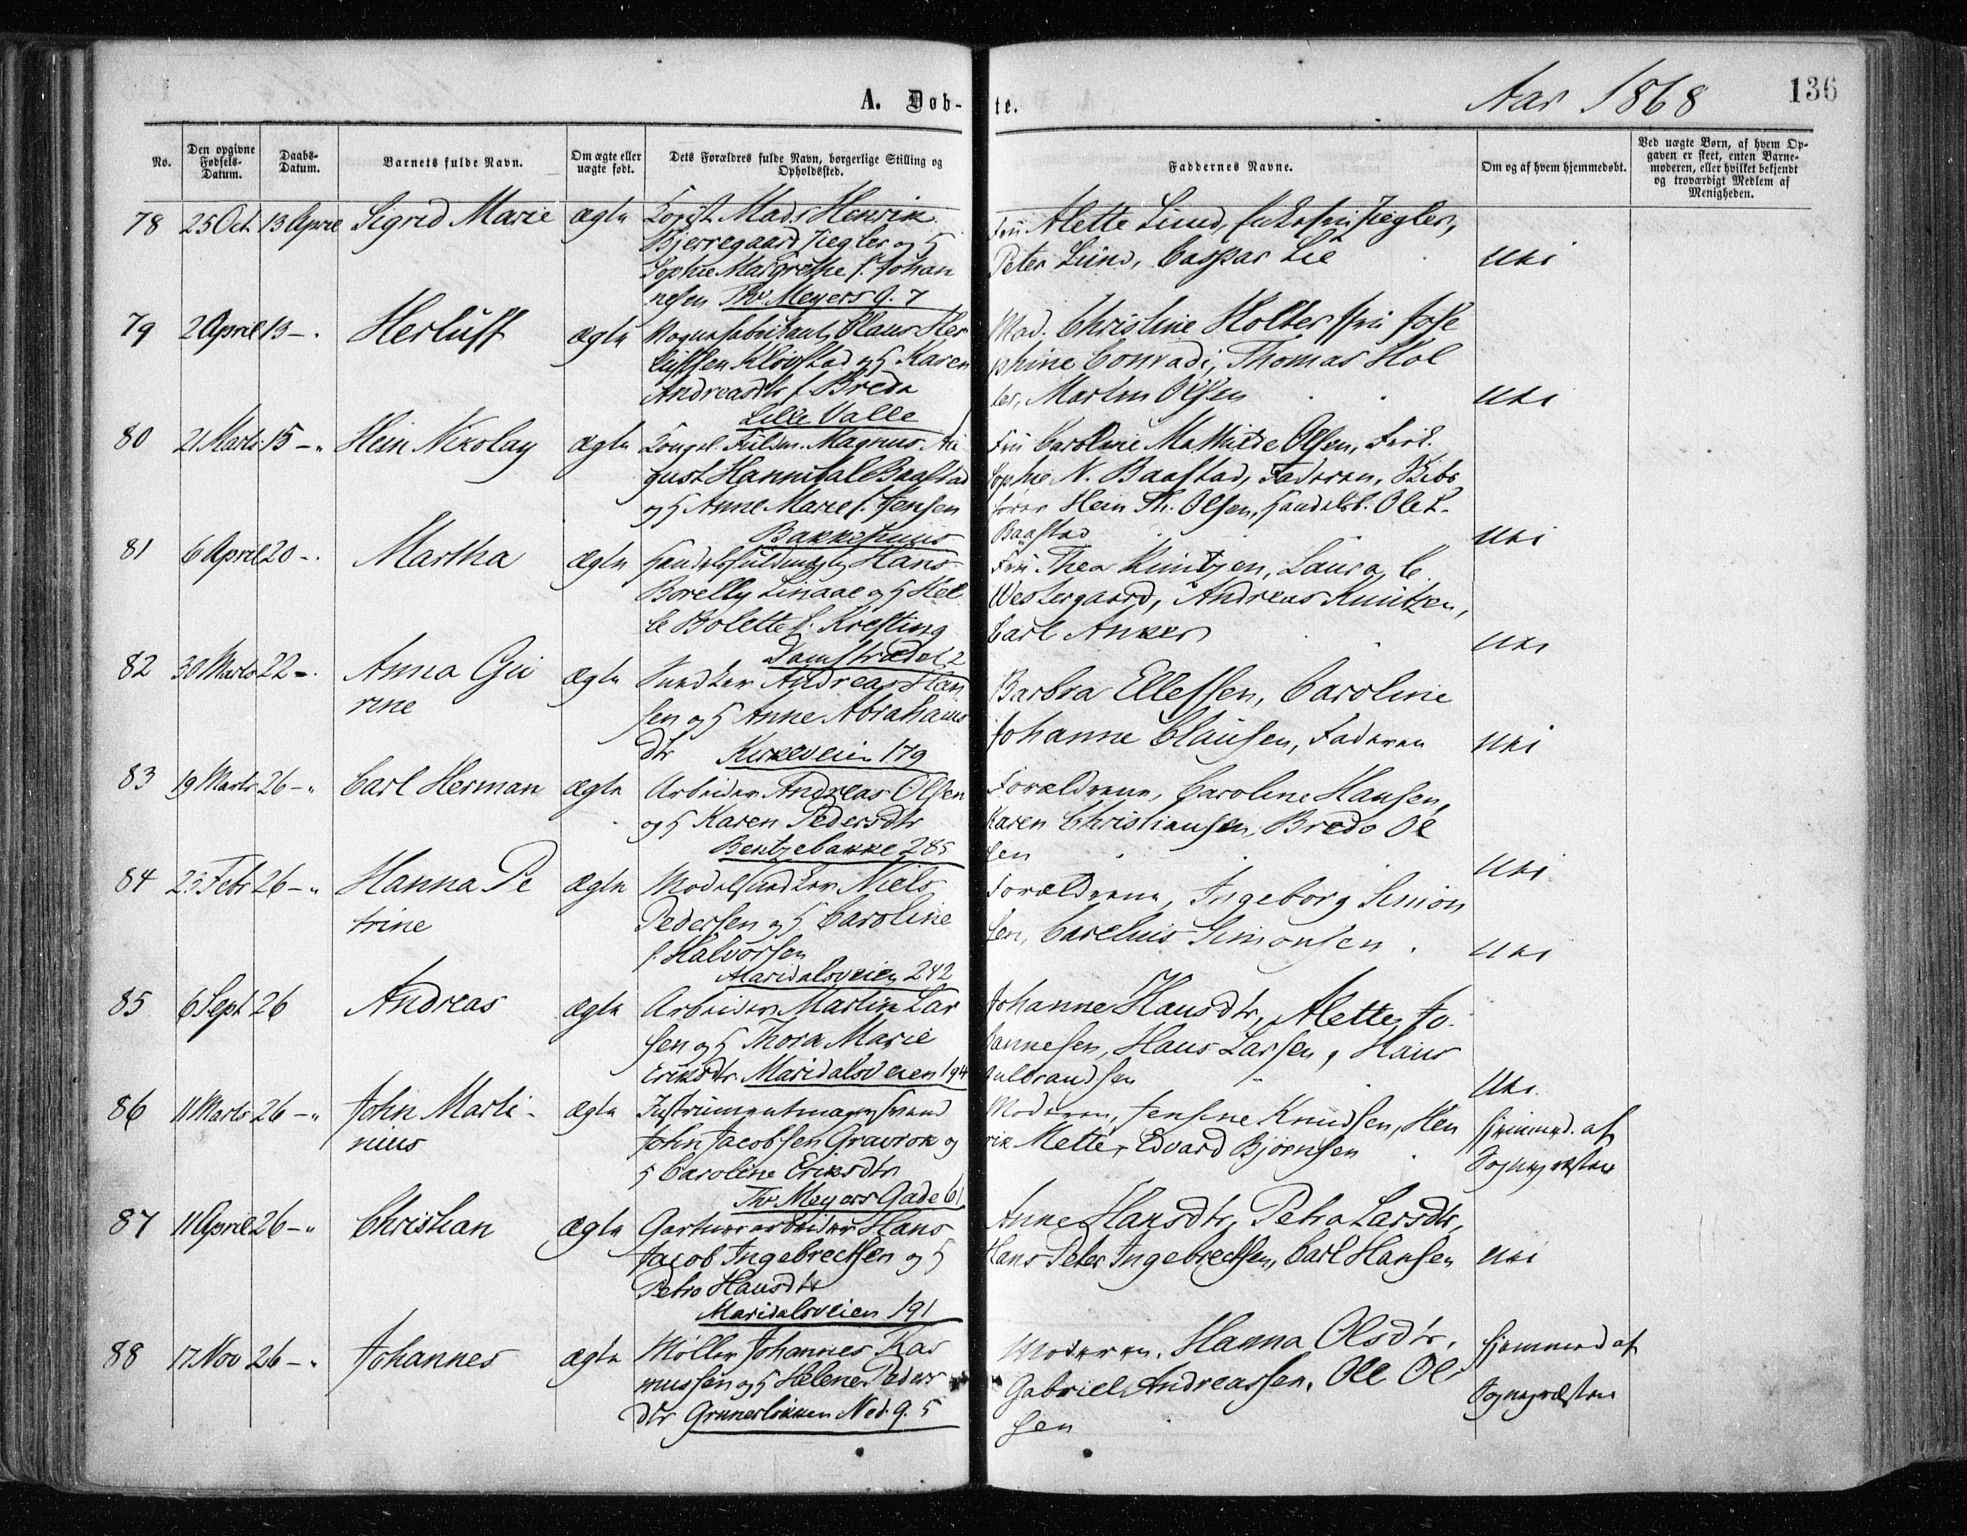 A. Døb-
te.
Aar 1868
136
No.
Den opgivne Fødsels-Datum.
Daabs-Datum.
Barnets fulde Navn.
Om ægte eller uægte født.
Dets Forældres fulde Navn, borgerlige Stilling og Opholdssted.
Faddernes Navne.
Om og af hvem hjemmedøbt.
Ved uægte Børn, af hvem Op-
gaven er skeet, enten Barne-
moderen, eller hvilket bekjendt
og troværdigt Medlem af
Menigheden.
78 25 Oct. 13 April Sigrid Marie ægte Mads Henrik
Bjerregaard Ziegler og H
Sophie Margrethe f. Johan
nesen Thv. Meyers G. 7
Fru Alette Lund, Ziegler,
Peter Lund, Caspar Lie
Uki
79 2 April 13 -. Herluff ægte Vognfabrikant Claus Her
luffsen Klopstad og H Karen
Andreasdtr f Breda
Lille Valle
Mad. Christine Holter Fru Jose
phine Conradi, Thomas Hol
ter, Martin Olsen
Uki
80 21 Marts 15 -" Hein Nikolay ægte Magnus Au
gust Hannibal Baastad
og H Anne Marie f. Jensen
Bakkehuus
Fru Caroline Mathilde Olsen, Frøk.
Sophie N. Baastad, Faderen,
Hein Th. Olsen, Handelsb. Ole L.
Baastad
Uki
81 6 April 20 -. Martha ægte Handelsfuldmægtig Hans
Borelly Linaae og H Hel
le Bolette f. Kresting
Damstrædet 2
Fru Thea Knutzen, Laura C.
Westergaard, Andreas Knutzen,
Carl Anker
Uki
82 30 Marts 22 -. Anna Gu
rine
ægte Snedker Andreas Han
sen og H Anne Abrahams
dtr Kirkeveien 179
Barbra Ellefsen, Caroline
Johanne Clausen, Faderen
Uki
83 19 Marts 26 -" Carl Herman ægte Arbeider Andreas Olsen
og H Karen Pedersdtr
Bentzebakke 285
Forældrene, Caroline Hansen,
Karen Christiansen, Bredo Ol
sen
Uki
84 23 Febr 26 -" Hanna Pe
trine
ægte Modelsnedker Niels
Pedersen og H Caroline
f. Halvorsen
Maridalsveien 242
Forældrene, Ingeborg Simon
sen, Carelius Simonsen.
Uki
85 6 Sept 26 Andreas ægte Arbeider Martin Lar
sen og H Thora Marie
Eriksdtr Maridalsveien 194
Johanne Hansdtr, Alette Jo-
hannesen, Hans Larsen, Hans
Gulbrandsen
Uki
86 11 Marts 26 -" John Marti-
nius
ægte Instrumentmagersvend
John Jacobsen Gravrok og
H Caroline Eriksdtr
Thv. Meyers Gade 61
Moderen, Jensine Knudsen, Hen
rik Mette, Edvard Bjørnsen
Hjemmed. af
Sognepræsten
87 11 April 26 -" Christian ægte Gartnerarbeider Hans
Jacob Ingebrectsen og H
Petra Hansdtr
Maridalsveien 191
Anne Hansdtr, Petra Larsdtr,
Hans Peter Ingebrectsen, Carl Hansen
Uki
88 17 Nov 26 -" Johannes ægte Møller Johannes Ras
mussen og H Helene Peders
dtr Grünerløkken Ned. G. 5
Moderen, Hanna Olsdtr,
Gabriel Andreassen, Ole Ol
sen
Hjemmed af
Sognepræsten